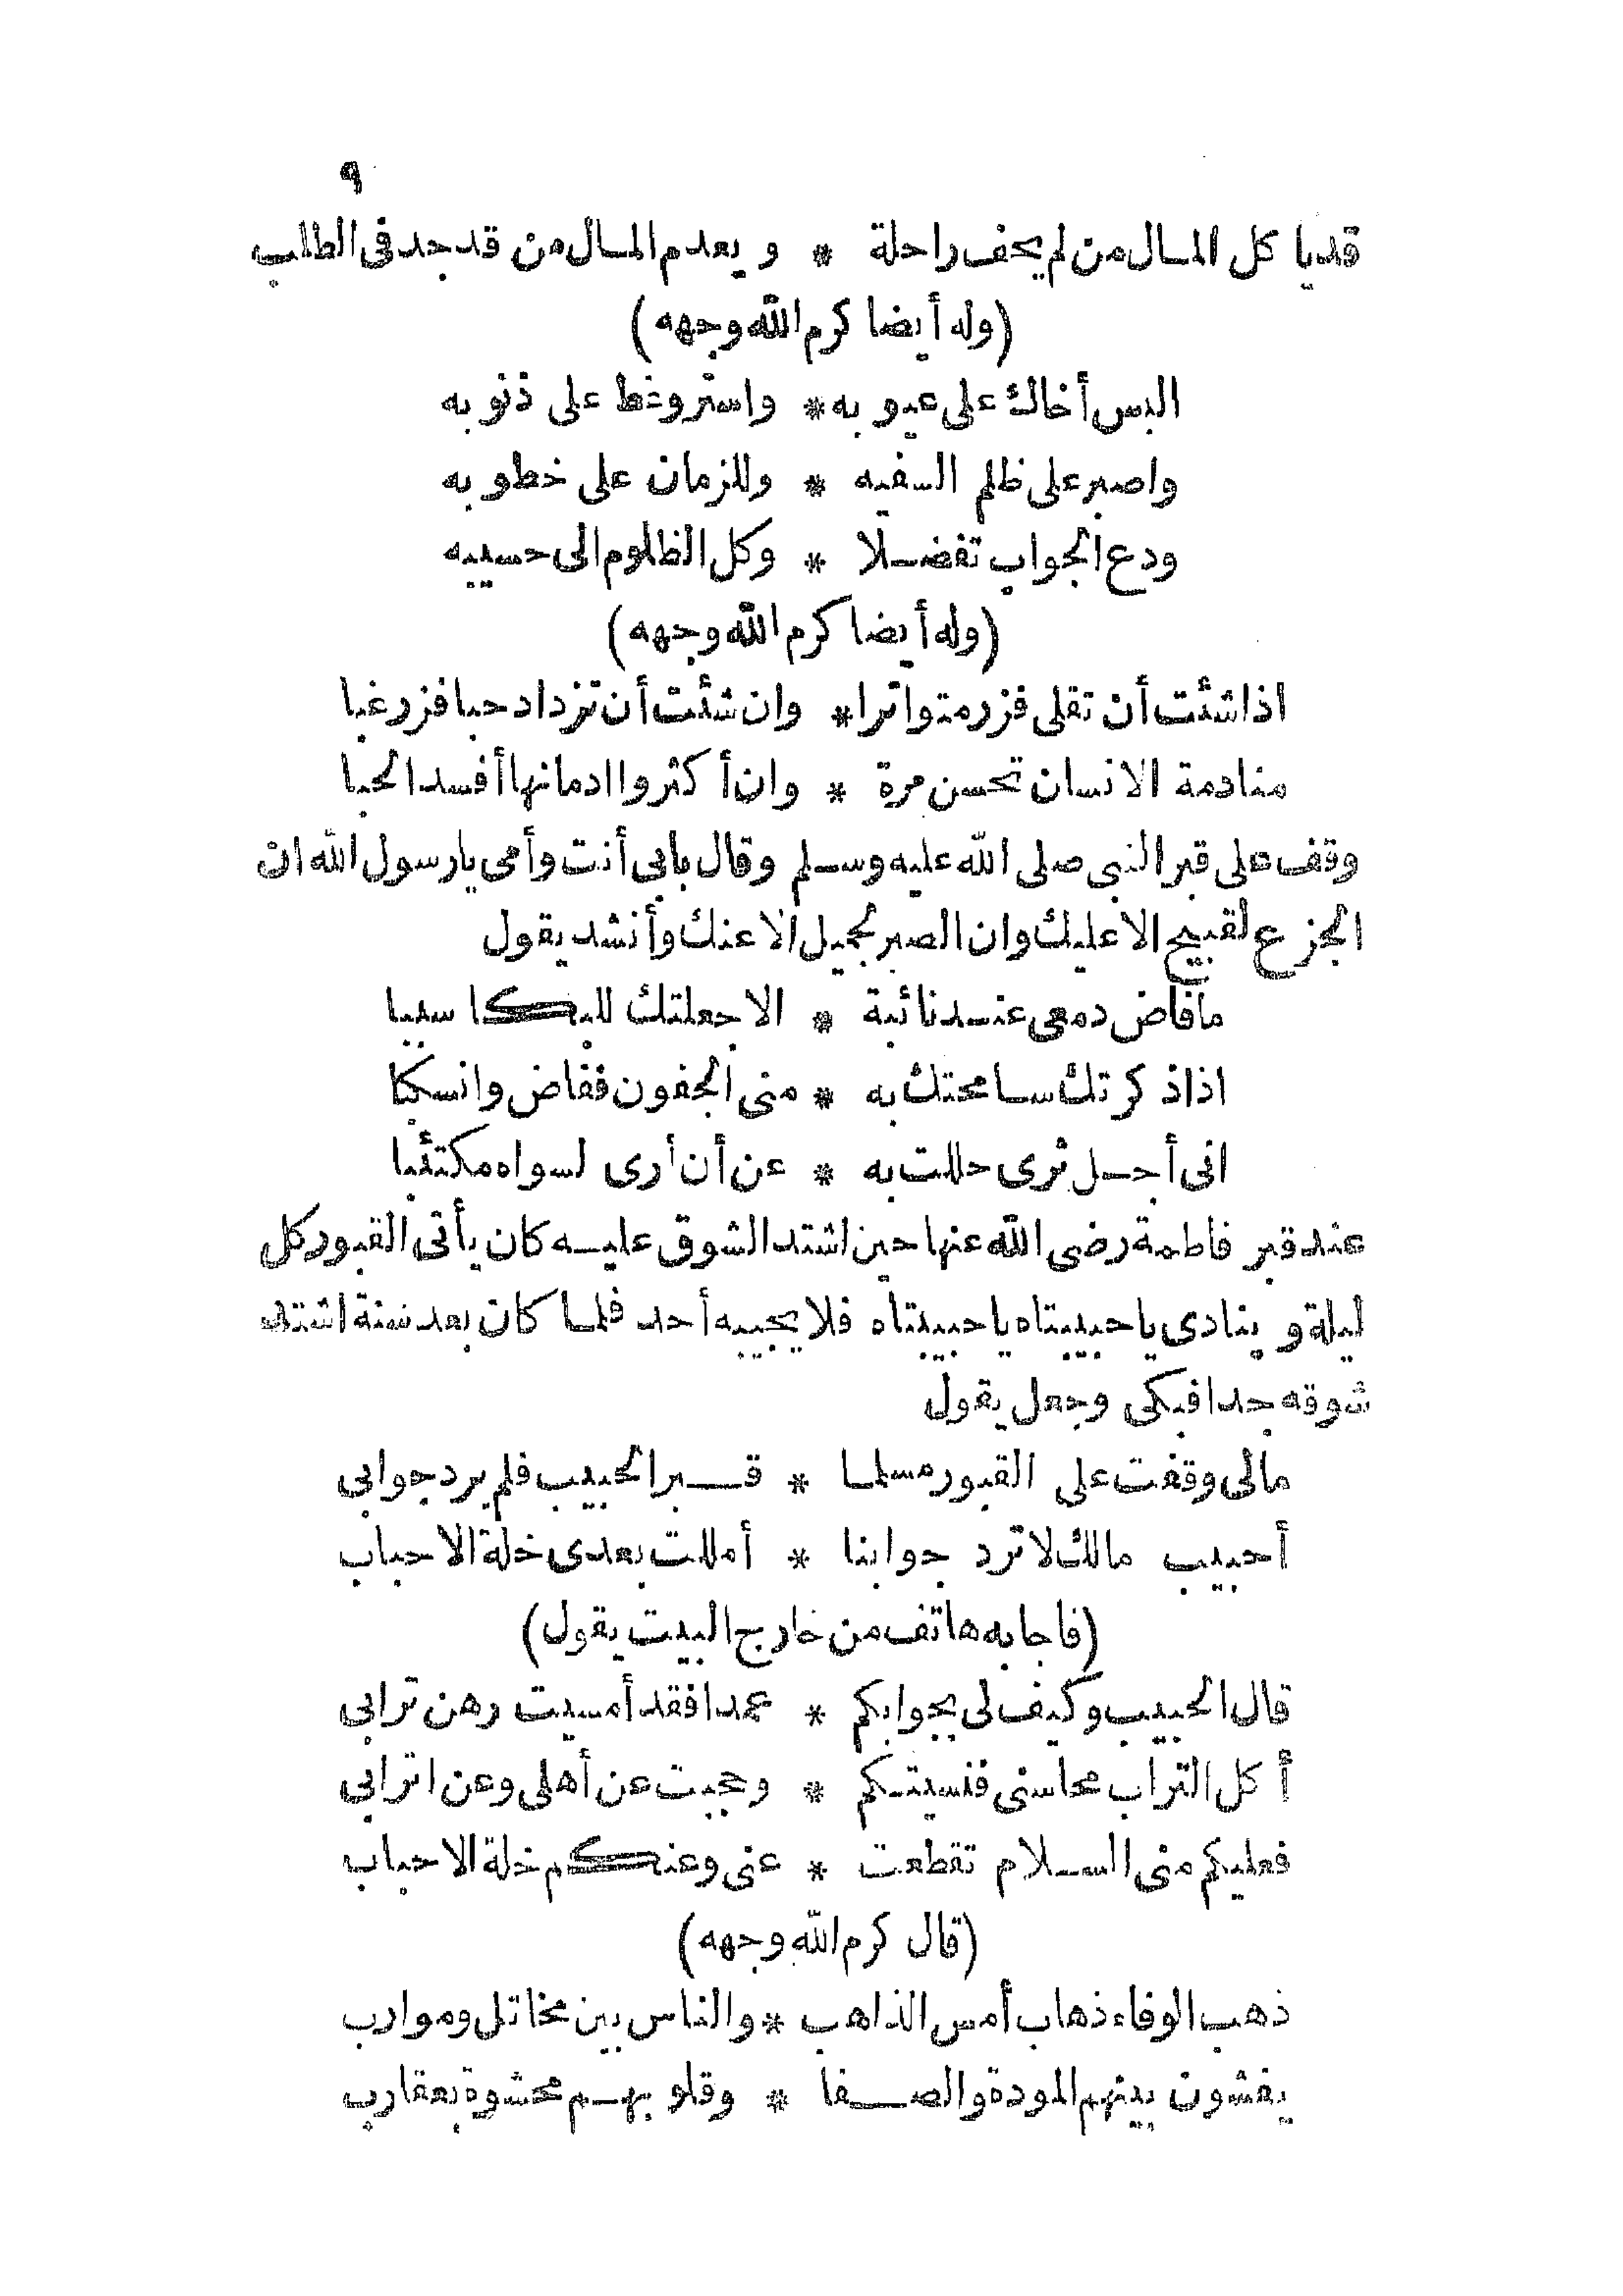 ٩
قديا كل المال من لم يحف راحلة * ويعدم المال من قد جد فى الطلب
(وله أيضا كرم الله وجهه)
البس أخاك على عيوبه * واستر وغط على ذنوبه
واصبر على ظلم السفيه * وللزمان على خطوبه
ودع الجواب تفضلا * وكل الظلوم الى حسيبه
(وله أيضا كرم الله وجهه)
اذا شئت أن تقلى فزر متواترا * وان شئت أن تزداد حبا فزر غبا
منادمة الانسان تحسن مرة * وان أكثروا ادمانها أفسد الحبا
وقف على قبر النبى صلى الله عليه وسلم وقال بابى أنت وأمى يارسول الله ان
الجزع لقبيح الا عليك وان الصبر لجميل الا عنك وأنشد يقول
مافاض دمعى عند نائبة * الا جعلتك للبكا سببا
اذا ذكرتك سامحتك به * منى الجفون ففاض وانسكبا
انى أجل ثرى حللت به * عن أن أرى لسواه مكتئبا
عند قبر فاطمة رضى الله عنها حين اشتد الشوق عليه كان يأتى القبور كل
ليلة وينادى يا حبيبتاه يا حبيبتاه فلا يجيبه أحد فلما كان بعد سنة اشتد
شوقه جدا فبكى وجعل يقول
مالى وقفت على القبور مسلما * قبر الحبيب فلم يرد جوابى
أحبيب مالك لا ترد جوابنا * أمللت بعدى خلة الاحباب
(فاجابه هاتف من خارج البيت يقول)
قال الحبيب وكيف لى بجوابكم * عمدا فقد أمسيت رهن ترابى
أكل التراب محاسنى فنسيتكم * وحجبت عن أهلى وعن اترابى
فعليكم منى السلام تقطعت * عنى وعنكم خلة الاحباب
(قال كرم الله وجهه)
ذهب الوفاء ذهاب أمس الذاهب * والناس بين مخاتل وموارب
يفشون بينهم المودة والصفا * وقلوبهم محشوة بعقارب